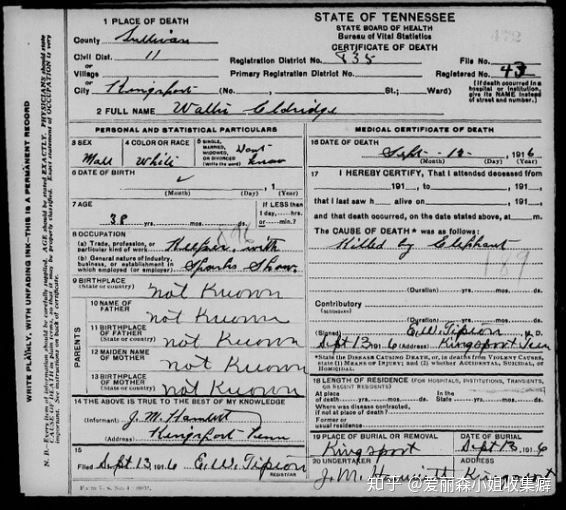 1 PLACE OF DEATH
County Sullivan
Civil Dist. 11
or
Village
or
City Kingsport (No., St.; Ward)
2 FULL NAME Walter Eldridge
STATE OF TENNESSEE
STATE BOARD OF HEALTH
Bureau of Vital Statistics
CERTIFICATE OF DEATH
472
Registration District No. 835
File No.
Primary Registration District No.
Registered No. 43
(If death occurred in a
hospital or institution,
give its NAME instead
of street and number.)
WRITE PLAINLY, WITH UNFADING INK—THIS IS A PERMANENT RECORD
PERSONAL AND STATISTICAL PARTICULARS
3 SEX
Male
4 COLOR OR RACE
White
5 SINGLE,
MARRIED,
WIDOWED,
OR DIVORCED
(Write the word)
Dont
Know
6 DATE OF BIRTH
(Month) (Day), 1 (Year)
7 AGE
38 yrs. mos. ds.
If LESS than
1 day, hrs.
or min.?
8 OCCUPATION
(a) Trade, profession, or
particular kind of work Keeper, with
(b) General nature of industry,
business, or establishment in
which employed (or employer) Sparks Show
9 BIRTHPLACE
(State or country) not Known
PARENTS
10 NAME OF
FATHER not Known
11 BIRTHPLACE
OF FATHER
(State or country) not Known
12 MAIDEN NAME
OF MOTHER not Known
13 BIRTHPLACE
OF MOTHER
(State or country) not Known
14 THE ABOVE IS TRUE TO THE BEST OF MY KNOWLEDGE
(Informant) J. M.
(Address) Kingsport Tenn
15
Filed Sept 13, 1916 E. W. Tipton
REGISTRAR
MEDICAL CERTIFICATE OF DEATH
16 DATE OF DEATH
Sept- 12- , 1916
(Month) (Day) (Year)
17 I HEREBY CERTIFY, That I attended deceased from
, 191 , to , 191 ,
that I last saw h alive on , 191 ,
and that death occurred, on the date stated above, at m.
The CAUSE OF DEATH* was as follows:
Killed by Elephant
189
(Duration) yrs. mos. ds.
Contributory
(Secondary)
(Duration) yrs. mos. ds.
(Signed) E. W. Tipton M. D.
Sept 13, 1916 (Address) Kingsport Tenn
*State the DISEASE CAUSING DEATH, or, in deaths from VIOLENT CAUSES,
state (1) MEANS OF INJURY; and (2) whether ACCIDENTAL, SUICIDAL, or
HOMICIDAL.
18 LENGTH OF RESIDENCE (FOR HOSPITALS, INSTITUTIONS, TRANSIENTS,
OR RECENT RESIDENTS)
At place
of death yrs. mos. ds. State yrs. mos. ds.
Where was disease contracted,
if not at place of death?
Former or
usual residence
19 PLACE OF BURIAL OR REMOVAL
Kingsport
DATE OF BURIAL
Sept 13, 1916
20 UNDERTAKER
J. M.
ADDRESS
Kingsport
知乎 @爱丽森小姐收集癖